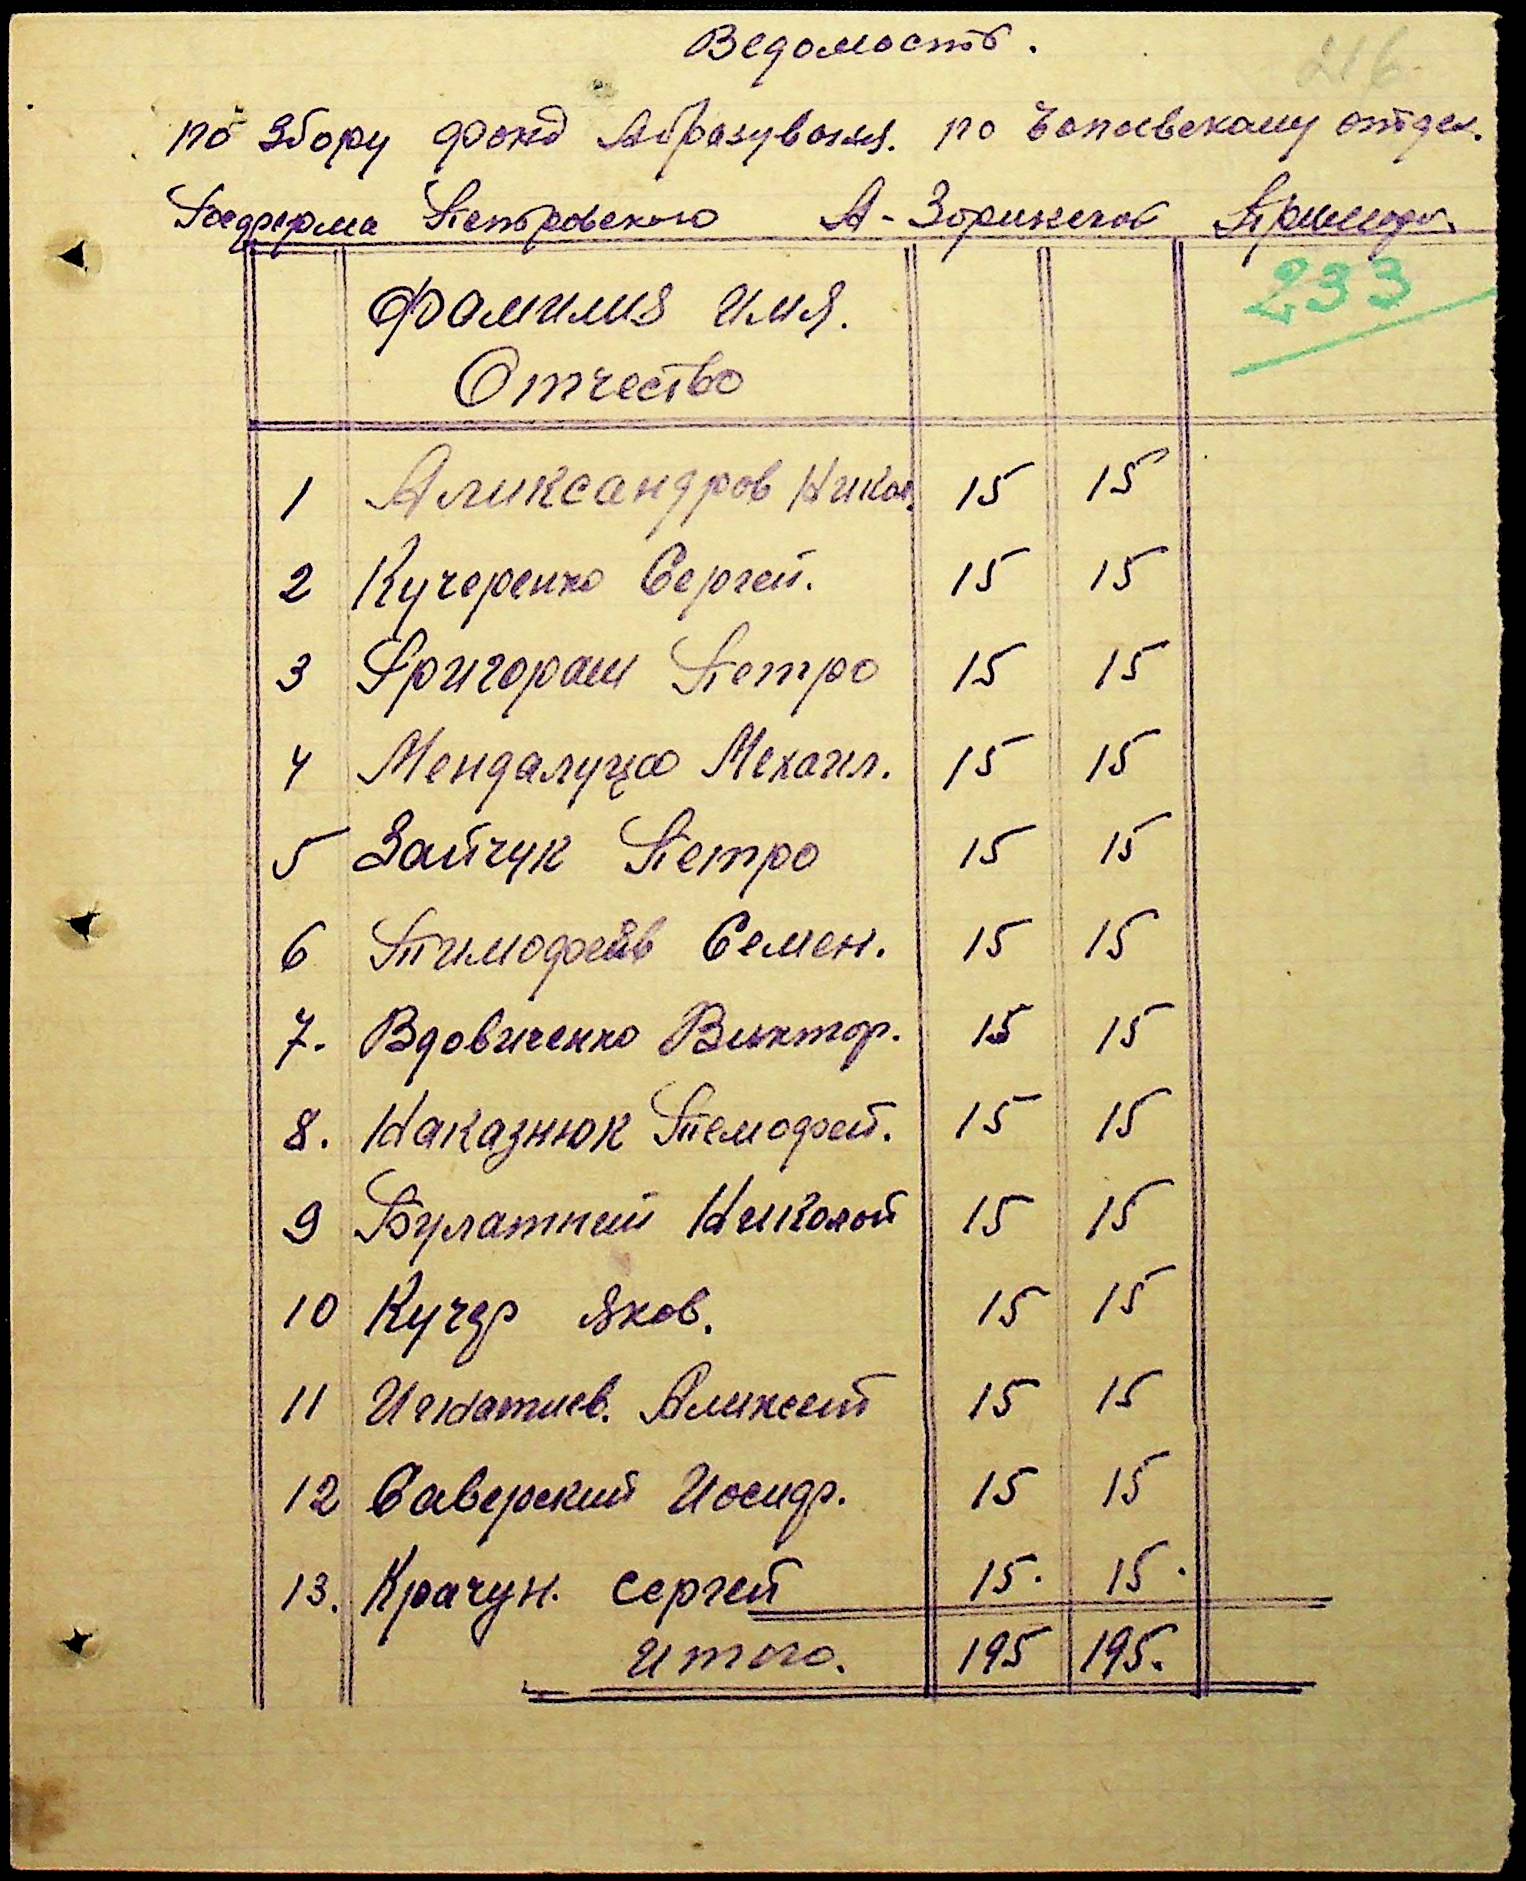 Ведомость.
216
по збору фонд Абразуваня. по Чапаевскому отдел.
Госферма Петровского А-Зориметов Примода
233
Фамилия имя.
Отчество
1 Аликсандров Никол. 15 15
2 Кучеренко Сергей. 15 15
3 Григораш Петро 15 15
4 Мендалуца Мехаил. 15 15
5 Зайчук Петро 15 15
6 Тимофейв Семен. 15 15
7. Вдовиченко Виктор. 15 15
8. Наказнюк Темофей. 15 15
9 Булатний Николой 15 15
10 Кучер Яков. 15 15
11 Игнатиев. Аликсей 15 15
12 Саверский Иосиф. 15 15
13. Крачун. Сергей 15. 15.
Итого. 195 195.